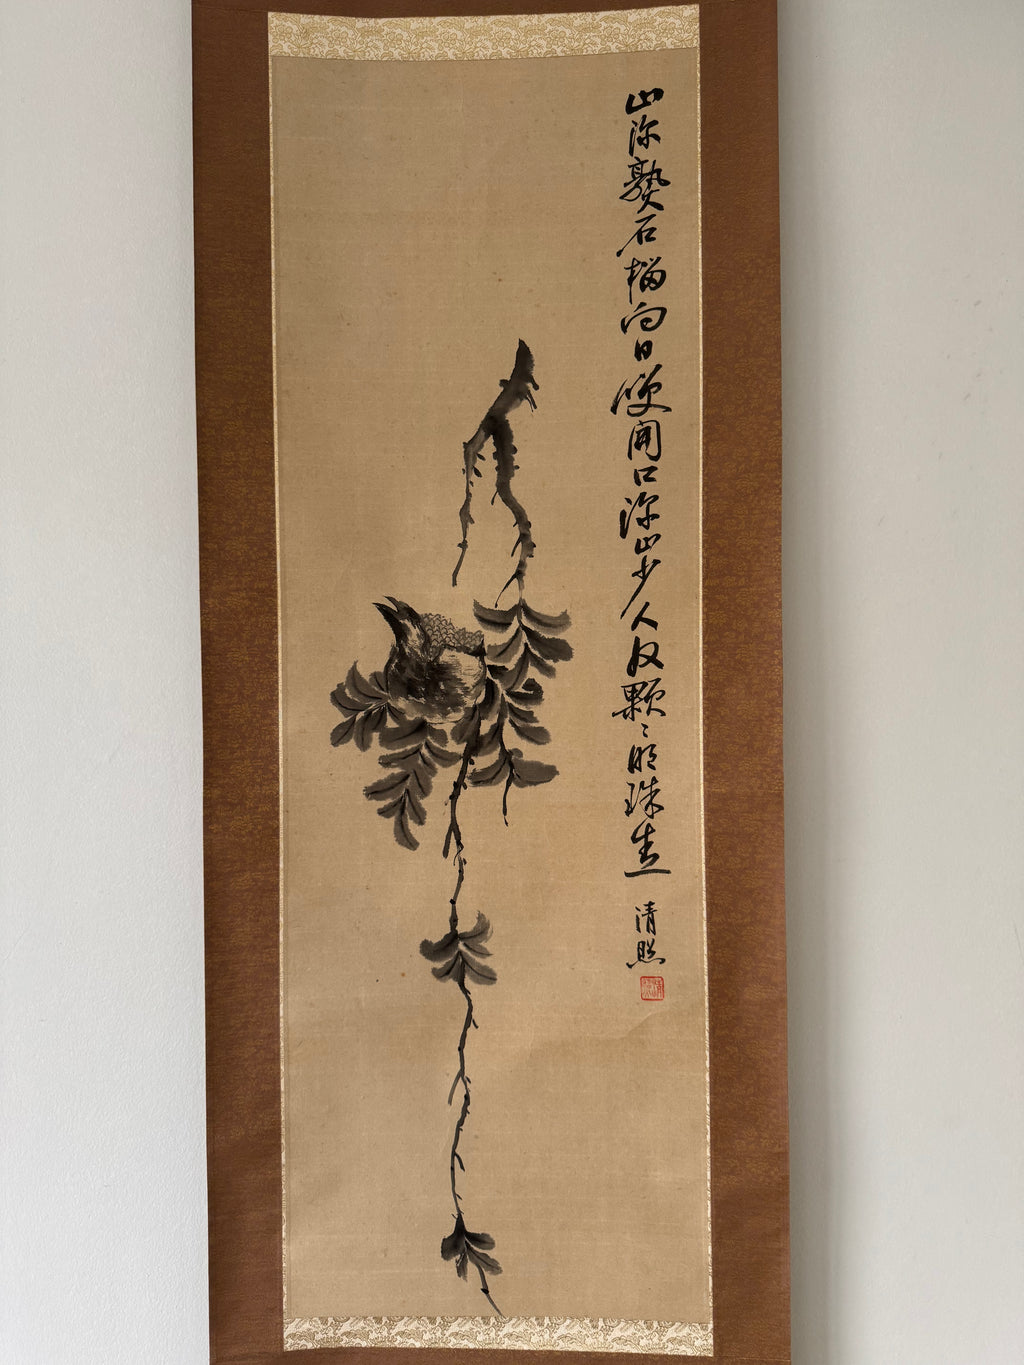 山深熟石榴向日便開口深山少人收顆〻明珠走
清照